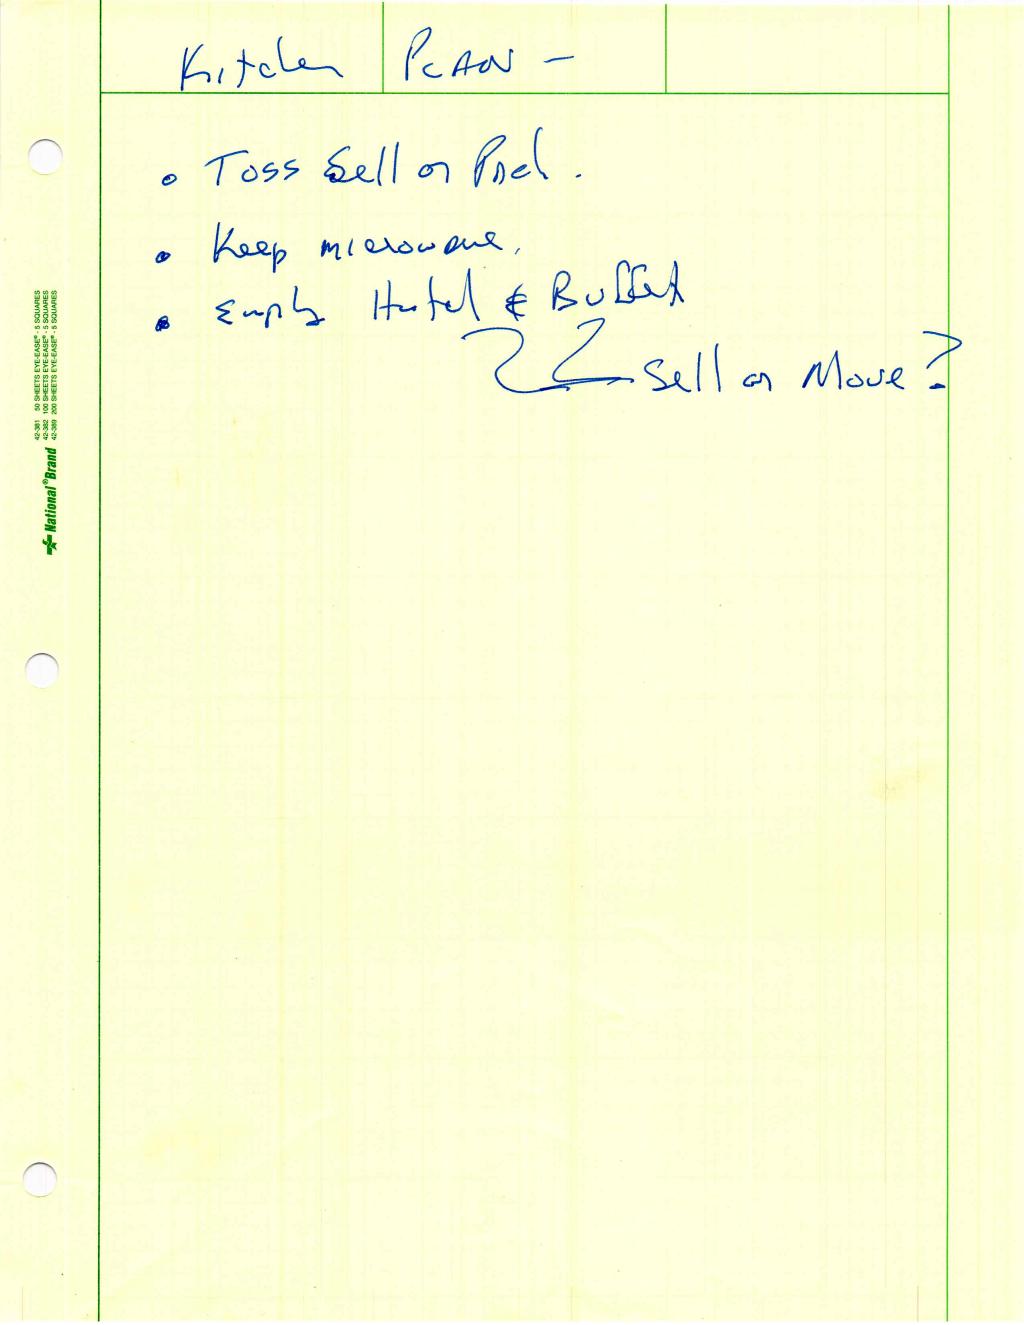 Kitchen PLAN -
• Toss Sell or Pack.
• Keep microwave.
• Empty & Buffet
Sell or Move?
42-381 50 SHEETS EYE-EASE® - 5 SQUARES
42-382 100 SHEETS EYE-EASE® - 5 SQUARES
42-389 200 SHEETS EYE-EASE® - 5 SQUARES
National®Brand